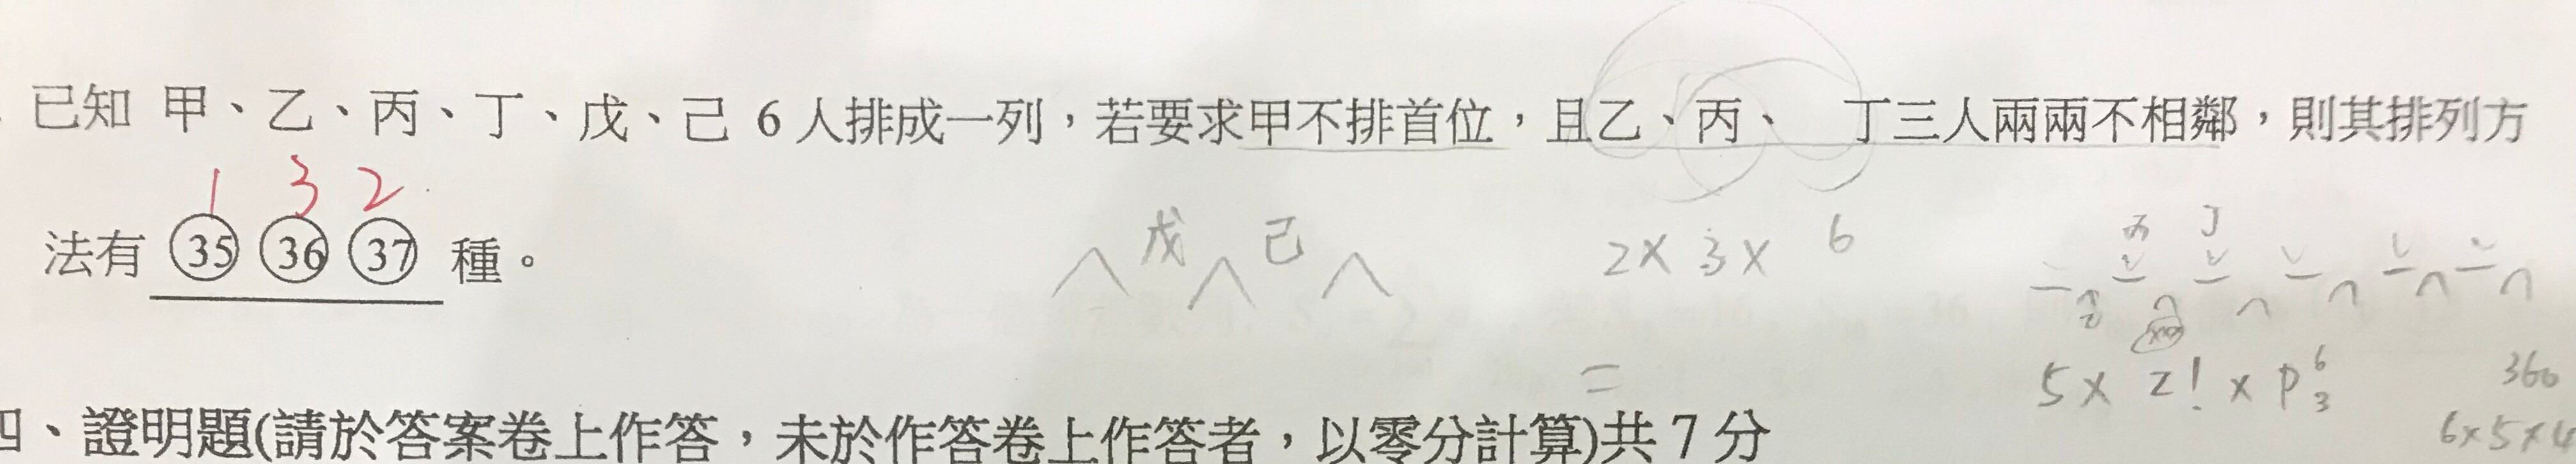 已知 甲、乙、丙、丁、戊、己 6 人排成一列，若要求甲不排首位，且乙、丙、 丁三人兩兩不相鄰，則其排列方
1 3 2
法有 ㉟ ㊱ ㊲ 種。
戊 己
2 × 3 × 6
丙 丁
乙
=
5 × 2! × P⁶₃
360
6×5×4
四、證明題(請於答案卷上作答，未於作答卷上作答者，以零分計算)共 7 分